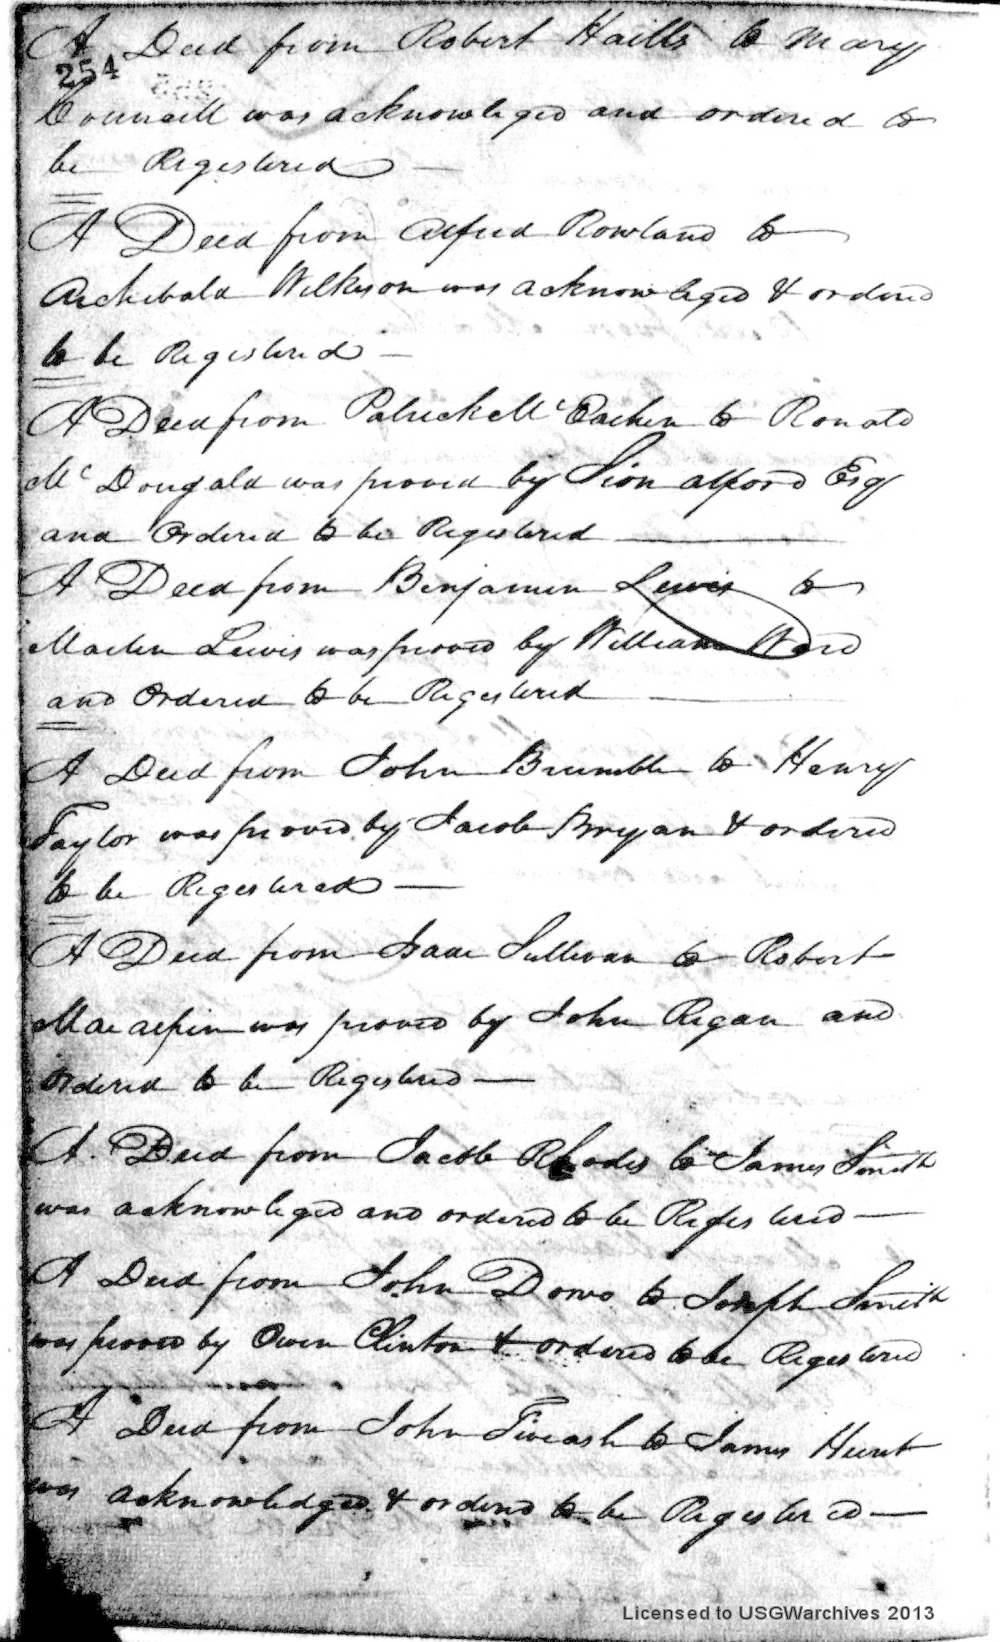 A Deed from Robert Haills to Mary
254
Councill was acknowleged and ordered to
be Registered
A Deed from Alfred Rowland to
Archibald Wilkyson was acknowleged & ordered
to be Registered
A Deed from Patrick McEachen to Ronald
McDougald was proved by Sion Alford Esq
and Ordered to be Registered
A Deed from Benjamin Lewis to
Marlen Lewis was proved by William Ward
and Ordered to be Registered
A Deed from John Brumble to Henry
Taylor was proved by Jacob Bryan & ordered
to be Registered
A Deed from Isaac Sullivan to Robert
Macalpin was proved by John Regan and
Ordered to be Registered
A Deed from Jacob Rhodes to James Smith
was acknowleged and ordered to be Registered
A Deed from John Dows to Joseph Smith
was proved by Owen Clinton & ordered to be Registered
A Deed from John Tiveash to James Hunt
was acknowledged & ordered to be Registered
Licensed to USGWarchives 2013